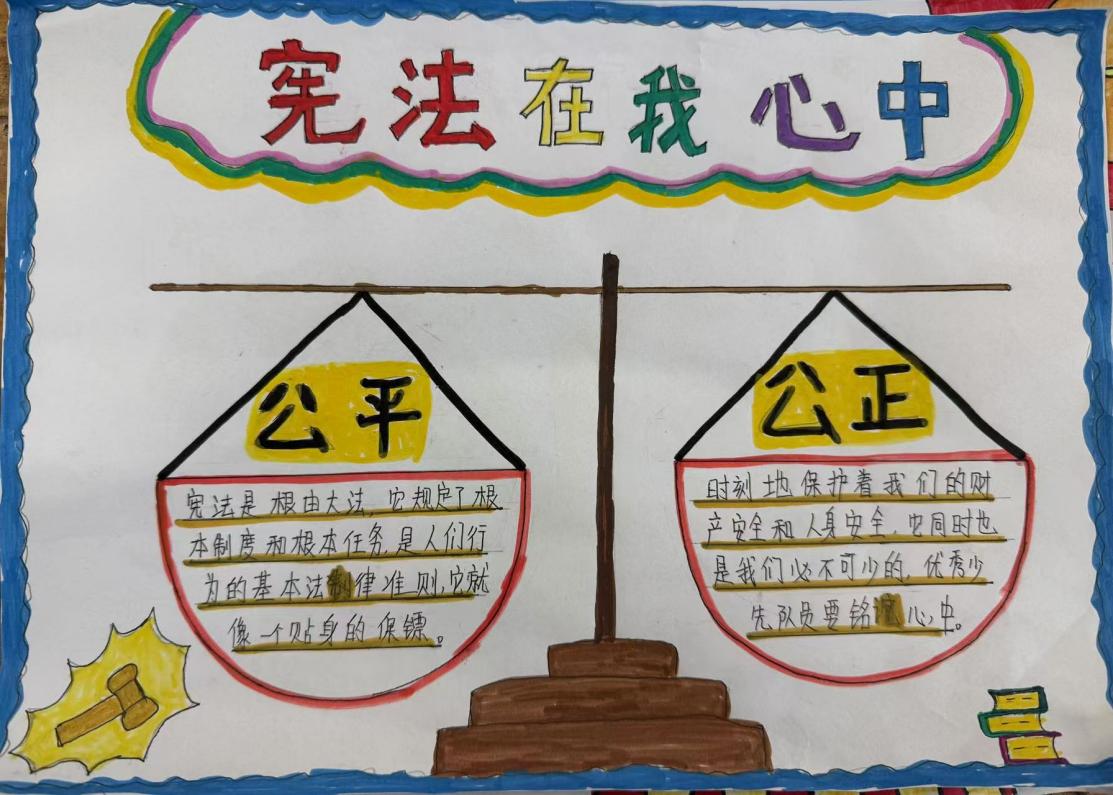 宪法在我心中
公平
宪法是根由大法，它规定了根
本制度和根本任务，是人们行
为的基本法律准则，它就
像一个贴身的保镖。
公正
时刻地保护着我们的财
产安全和人身安全，它同时也
是我们必不可少的，优秀少
先队员要铭心中。